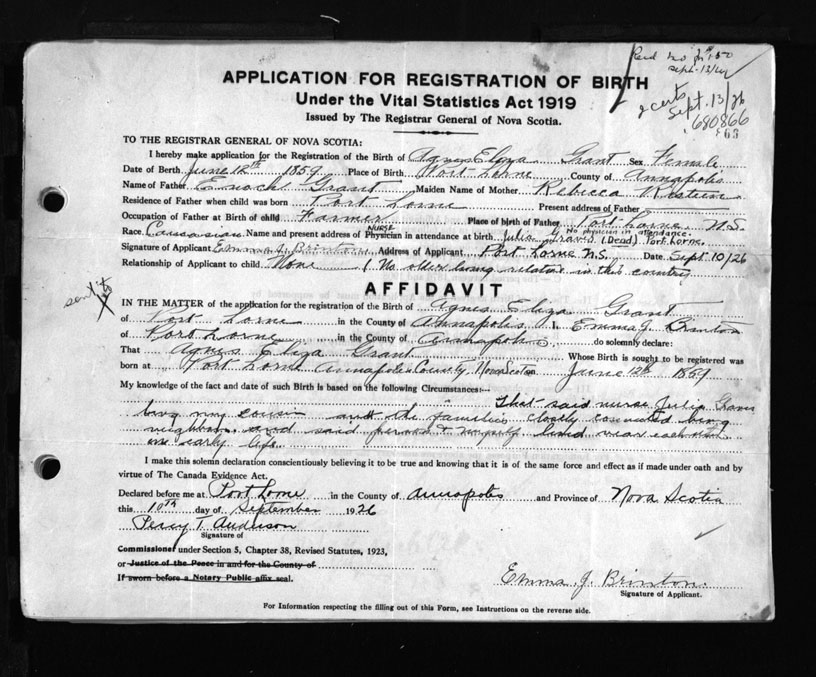 Sept. 13/26
2 certs
680866
63
APPLICATION FOR REGISTRATION OF BIRTH
Under the Vital Statistics Act 1919
Issued by The Registrar General of Nova Scotia.
TO THE REGISTRAR GENERAL OF NOVA SCOTIA:
I hereby make application for the Registration of the Birth of Agnes Eliza Grant Sex Female
Date of Birth June 12th 1859 Place of Birth Port Lorne County of Annapolis
Name of Father Enoch Grant Maiden Name of Mother Rebecca
Residence of Father when child was born Port Lorne Present address of Father
Occupation of Father at Birth of child Farmer Place of birth of Father Port Lorne N.S.
NURSE No physician in attendance.
Race. Caucasian Name and present address of Physician in attendance at birth Julia Graves (Dead) Port Lorne.
Signature of Applicant Emma J. Brinton Address of Applicant Port Lorne N.S. Date Sept 10/26
Relationship of Applicant to child None (No older living relative in this country
AFFIDAVIT
IN THE MATTER of the application for the registration of the Birth of Agnes Eliza Grant
of Port Lorne in the County of Annapolis I, Emma J. Brinton
of Port Lorne in the County of Annapolis do solemnly declare:
That Agnes Eliza Grant Whose Birth is sought to be registered was
born at Port Lorne Annapolis County, Nova Scotia June 12th 1859
My knowledge of the fact and date of such Birth is based on the following Circumstances:—
That said nurse Julia Graves
being my cousin and the families closely connected being
neighbors and said person & myself lived near each other
in early life.
I make this solemn declaration conscientiously believing it to be true and knowing that it is of the same force and effect as if made under oath and by
virtue of The Canada Evidence Act.
Declared before me at Port Lorne in the County of Annapolis and Province of Nova Scotia
this 10th day of September 1926
Percy T. Anderson
Signature of
Commissioner under Section 5, Chapter 38, Revised Statutes, 1923,
or Justice of the Peace in and for the County of
If sworn before a Notary Public affix seal.
Emma J. Brinton.
Signature of Applicant.
For Information respecting the filling out of this Form, see Instructions on the reverse side.